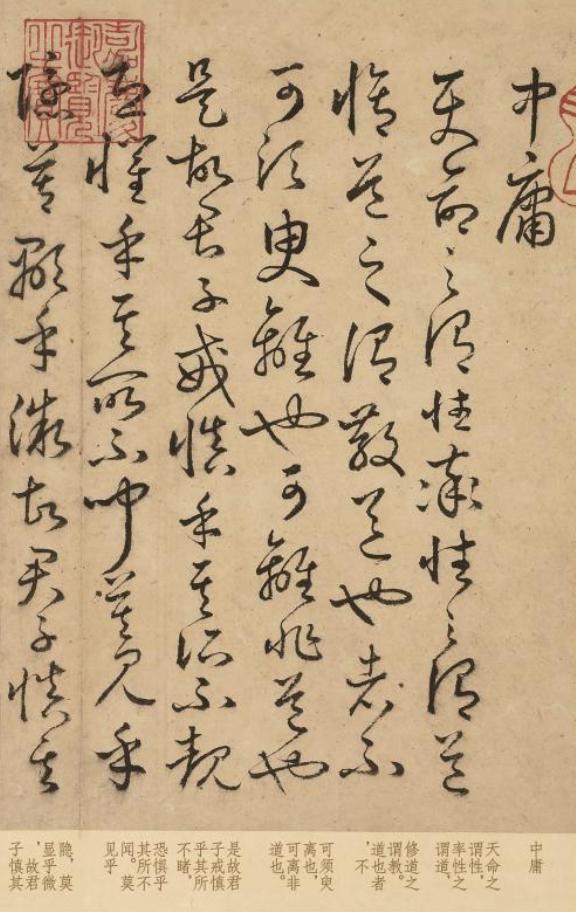 中庸
天命之謂性率性之謂道
脩道之謂教道也者不
可須臾離也可離非道也
是故君子戒慎乎其所不覩
恐懼乎其所不聞莫見乎
隱莫顯乎微故君子慎其
嘉慶
御覽
之寶
中庸
天命之
谓性,
率性之
谓道,
修道之
谓教。
道也者
，不
可须臾
离也，
可离非
道也。
是故君
子戒慎
乎其所
不睹，
恐惧乎
其所不
闻。莫
见乎
隐，莫
显乎微
，故君
子慎其